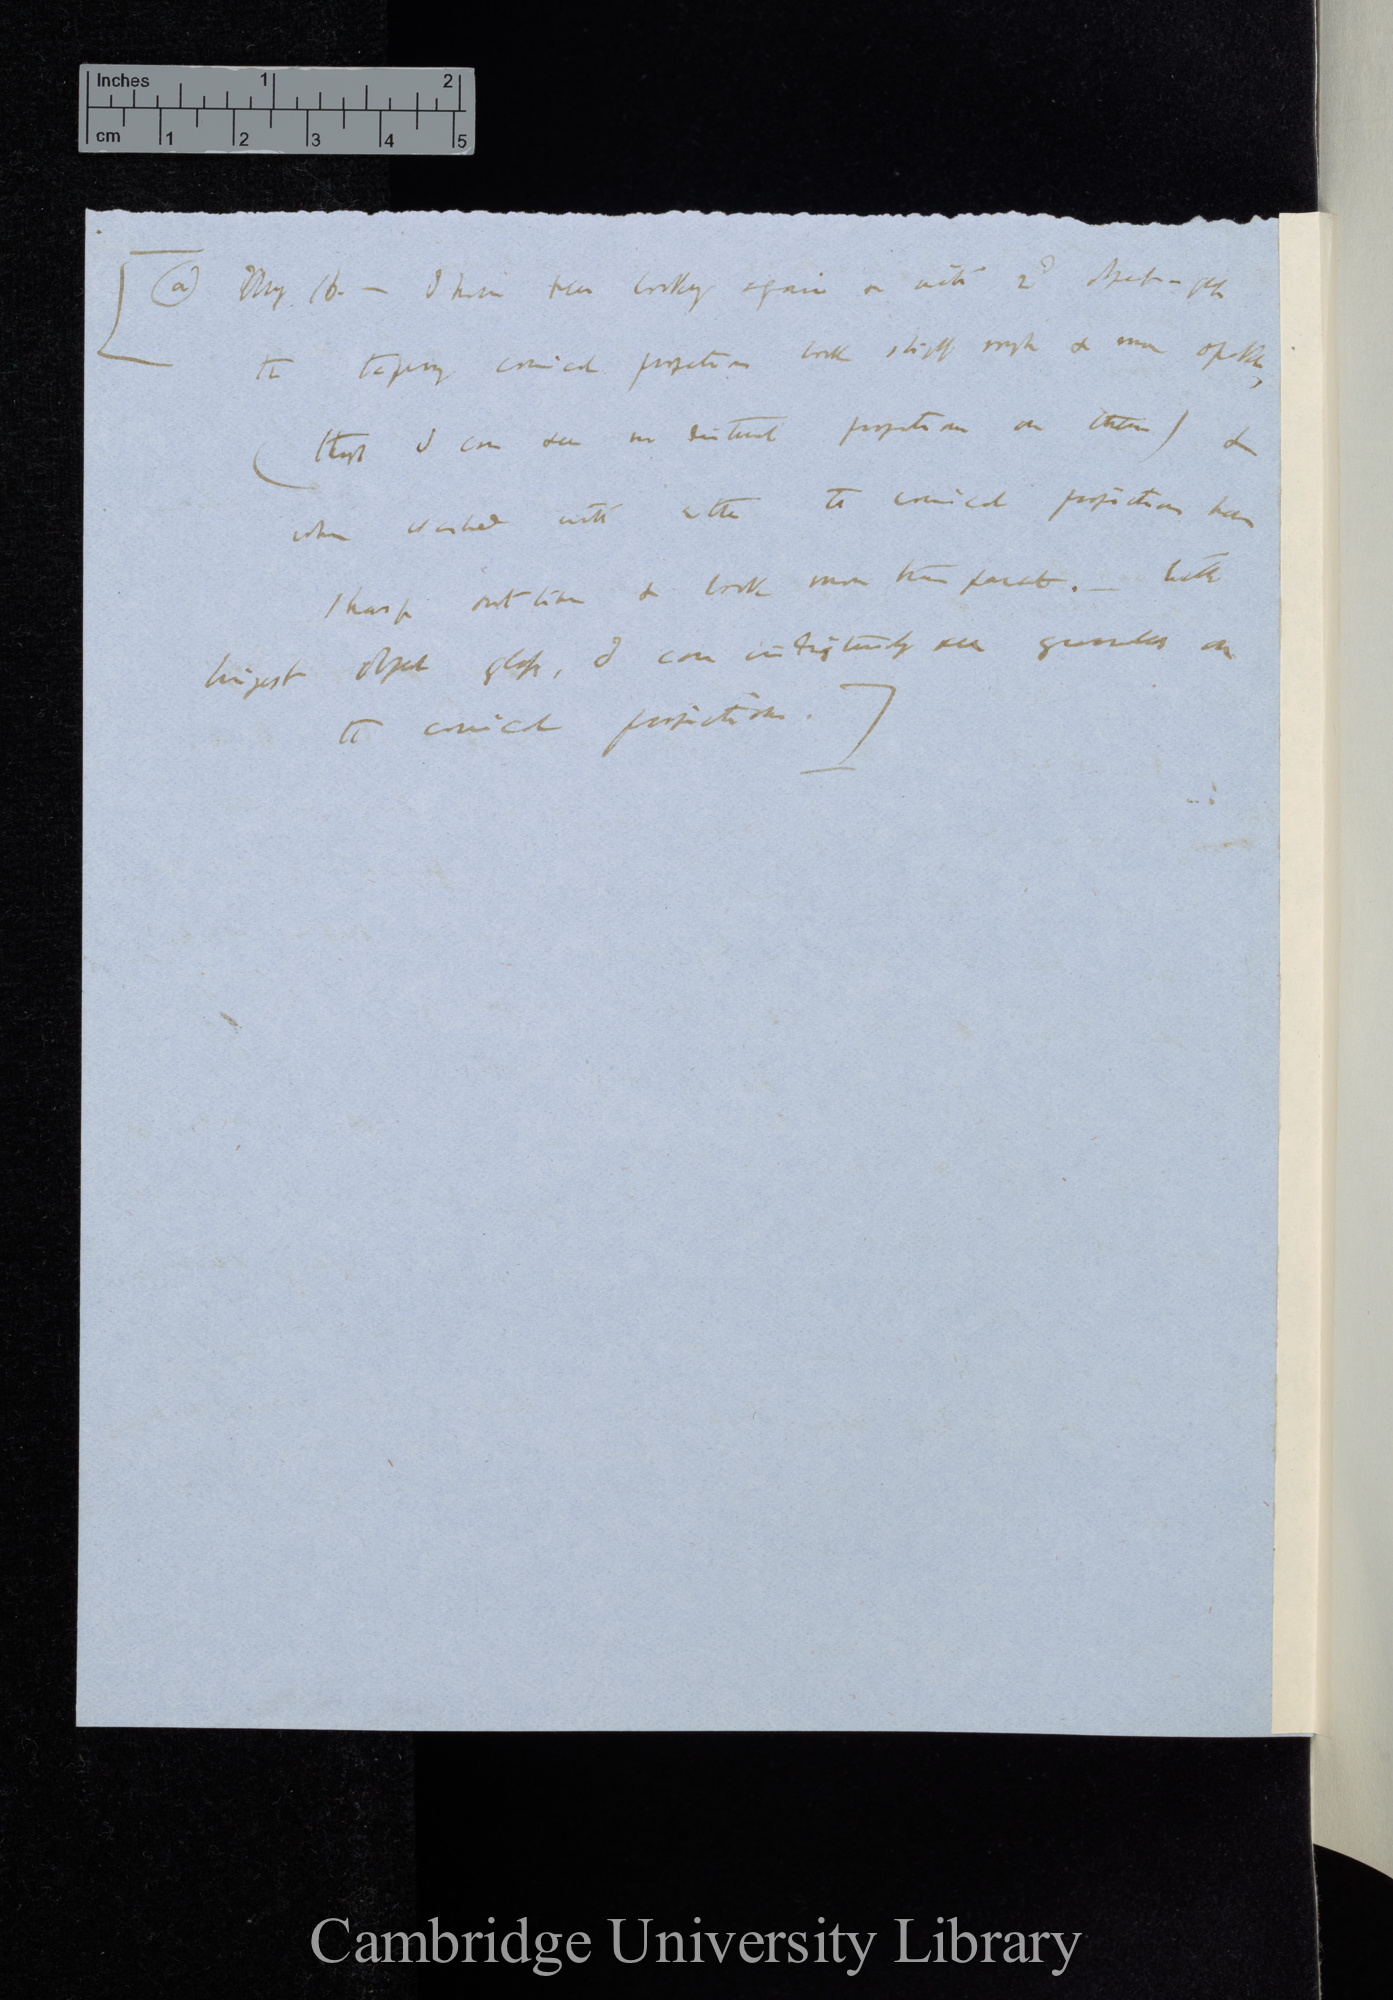 Inches 1 2
cm 1 2 3 4 5
(a) May 16. — I have been looking again & with 2d object-glass
the tapering conical projections look stiff rough & more opake,
(though I can see no distinct projections on them) &
when washed with water the conical projections have
sharp outline & look more transparent. — With
largest object glass, I can indistinctly see granules on
the conical projections.
Cambridge University Library